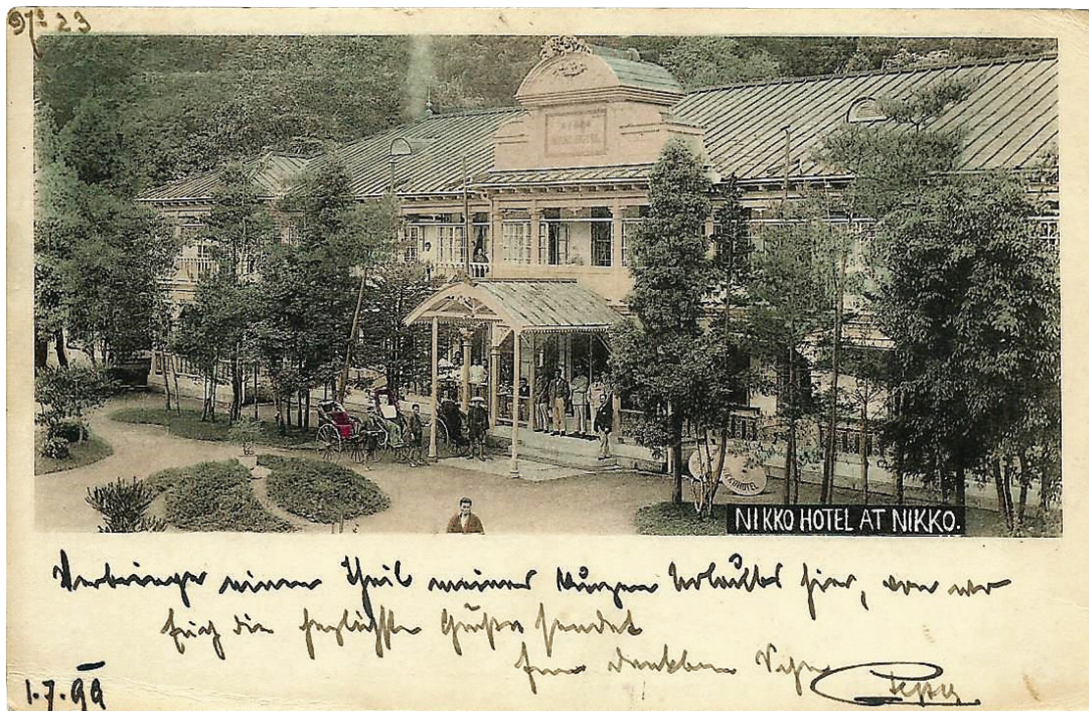 NIKKO HOTEL AT NIKKO.
Verbringe einen Theil meines kurzen Urlaubes hier, von wo
Euch die herzlichsten Grüße sendet
Euer dankbarer Sohn
1.7.99